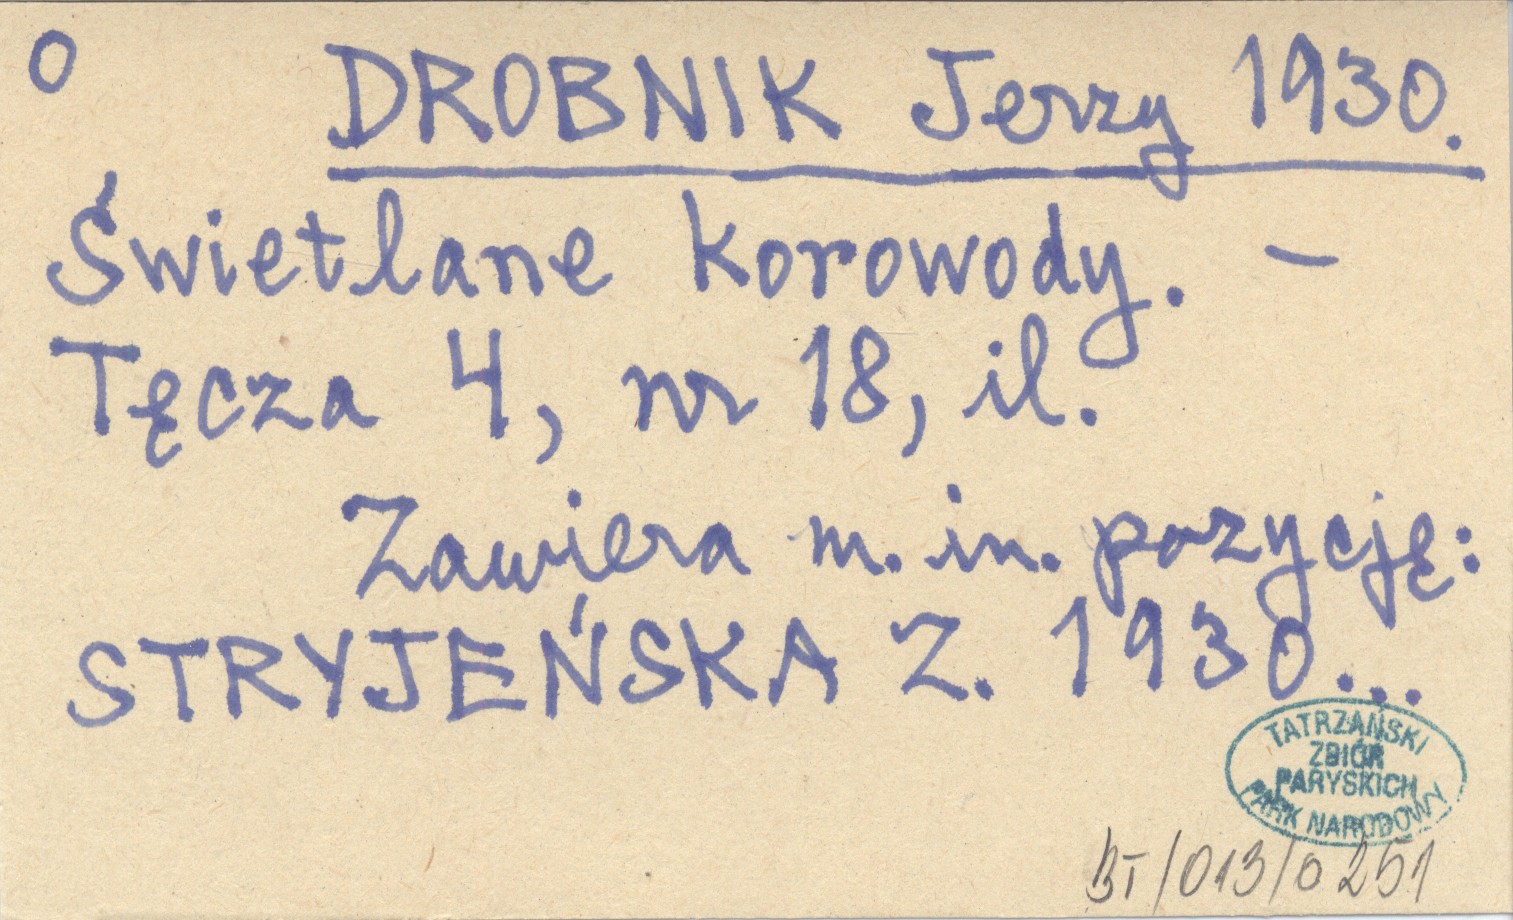 O
DROBNIK Jerzy 1930.
Świetlane korowody. –
Tęcza 4, nr 18, il.
Zawiera m. in. pozycję:
STRYJEŃSKA Z. 1930...
TATRZAŃSKI
ZBIÓR
PARYSKICH
PARK NARODOWY
BT/013/0251